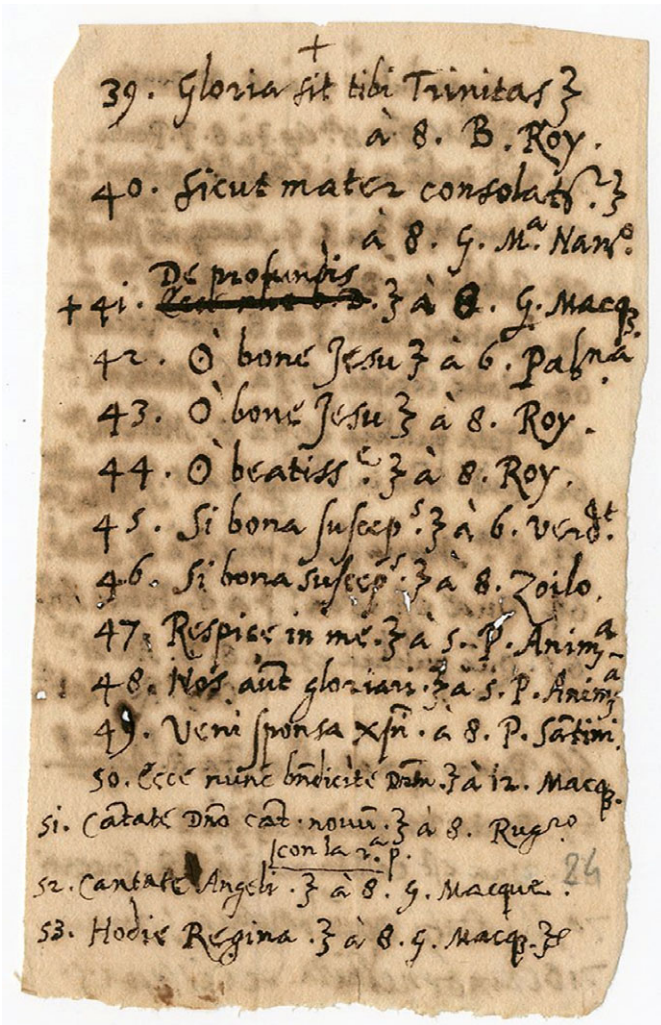 +
39. Gloria sit tibi Trinitas
à 8. B. Roy.
40. Sicut mater consolat.
à 8. G. M.ª Nan.º
De profundis
+ 41. à 8. G. Macq.
42. Ò bone Jesu à 6. Pal.na
43. Ò bone Jesu à 8. Roy.
44. Ò beatiss.e à 8. Roy.
45. Si bona suscep.s à 6. Verd.t
46. Si bona suscep.s à 8. Zoilo.
47. Respice in me. à 5. P. Anim.a
48. Nos aut gloriari. à 5. P. Anim.a
49. Veni sponsa xpi. à 8. P. Santini.
50. Ecce nunc bndicite Dnm. à 12. Macq.
51. Catate Dno cat. novum. à 8. Rug.ro
con la 2.a p.
52. Cantate Angeli. à 8. G. Macque.
24
53. Hodie Regina. à 8. G. Macq.